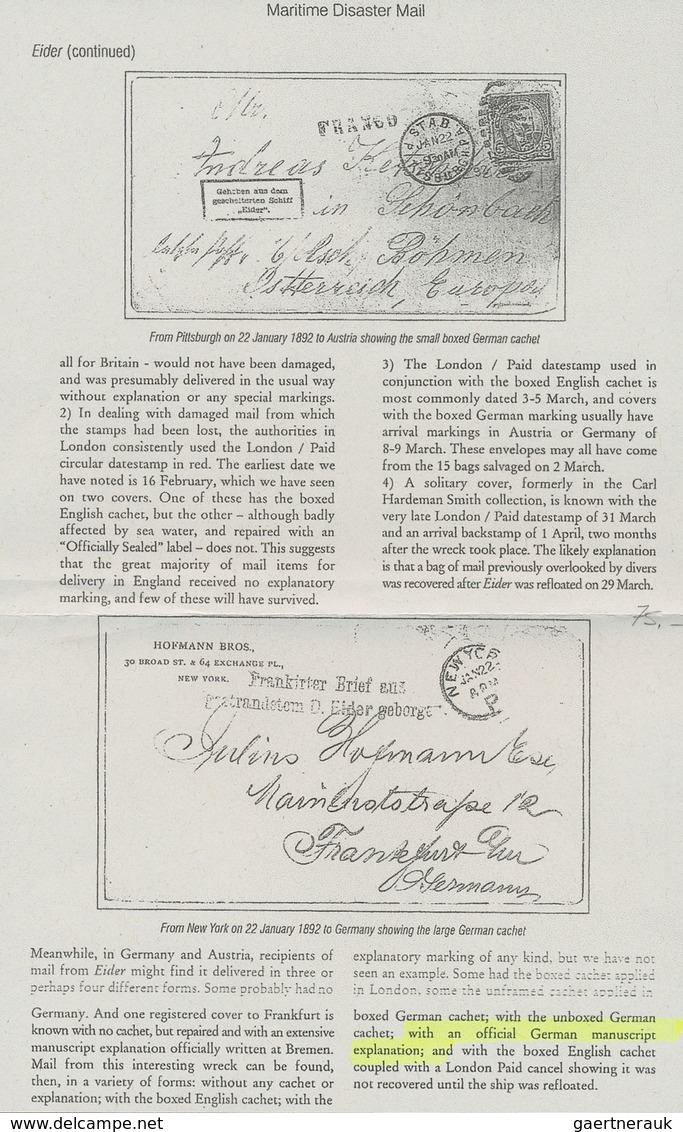 Maritime Disaster Mail
Eider (continued)
Mr.
FRANCO
PITTSBURGH, PA.
STA.B.
JAN 22
930AM
92
5
Andreas
Gehoben aus dem
gescheiterten Schiff
„Eider“.
in Schönbach
b/Asch, Böhmen
Östterreich, Europa
From Pittsburgh on 22 January 1892 to Austria showing the small boxed German cachet
all for Britain - would not have been damaged,
and was presumably delivered in the usual way
without explanation or any special markings.
2) In dealing with damaged mail from which
the stamps had been lost, the authorities in
London consistently used the London / Paid
circular datestamp in red. The earliest date we
have noted is 16 February, which we have seen
on two covers. One of these has the boxed
English cachet, but the other – although badly
affected by sea water, and repaired with an
“Officially Sealed” label – does not. This suggests
that the great majority of mail items for
delivery in England received no explanatory
marking, and few of these will have survived.
3) The London / Paid datestamp used in
conjunction with the boxed English cachet is
most commonly dated 3-5 March, and covers
with the boxed German marking usually have
arrival markings in Austria or Germany of
8-9 March. These envelopes may all have come
from the 15 bags salvaged on 2 March.
4) A solitary cover, formerly in the Carl
Hardeman Smith collection, is known with the
very late London / Paid datestamp of 31 March
and an arrival backstamp of 1 April, two months
after the wreck took place. The likely explanation
is that a bag of mail previously overlooked by divers
was recovered after Eider was refloated on 29 March.
75,-
HOFMANN BROS.,
30 BROAD ST. & 64 EXCHANGE PL.,
NEW YORK.
Frankirter Brief aus
gestrandetem D. Eider geborge
NEW YOR
JAN 22
8 PM
D
Julius Hofmann Esq,
Mainluststraße 12
Frankfurt
Germany
From New York on 22 January 1892 to Germany showing the large German cachet
Meanwhile, in Germany and Austria, recipients of
mail from Eider might find it delivered in three or
perhaps four different forms. Some probably had no
explanatory marking of any kind, but we have not
seen an example. Some had the boxed cachet applied
in London, some the unframed cachet applied in
Germany. And one registered cover to Frankfurt is
known with no cachet, but repaired and with an extensive
manuscript explanation officially written at Bremen.
Mail from this interesting wreck can be found,
then, in a variety of forms: without any cachet or
explanation; with the boxed English cachet; with the
boxed German cachet; with the unboxed German
cachet; with an official German manuscript
explanation; and with the boxed English cachet
coupled with a London Paid cancel showing it was
not recovered until the ship was refloated.
gaertnerauk